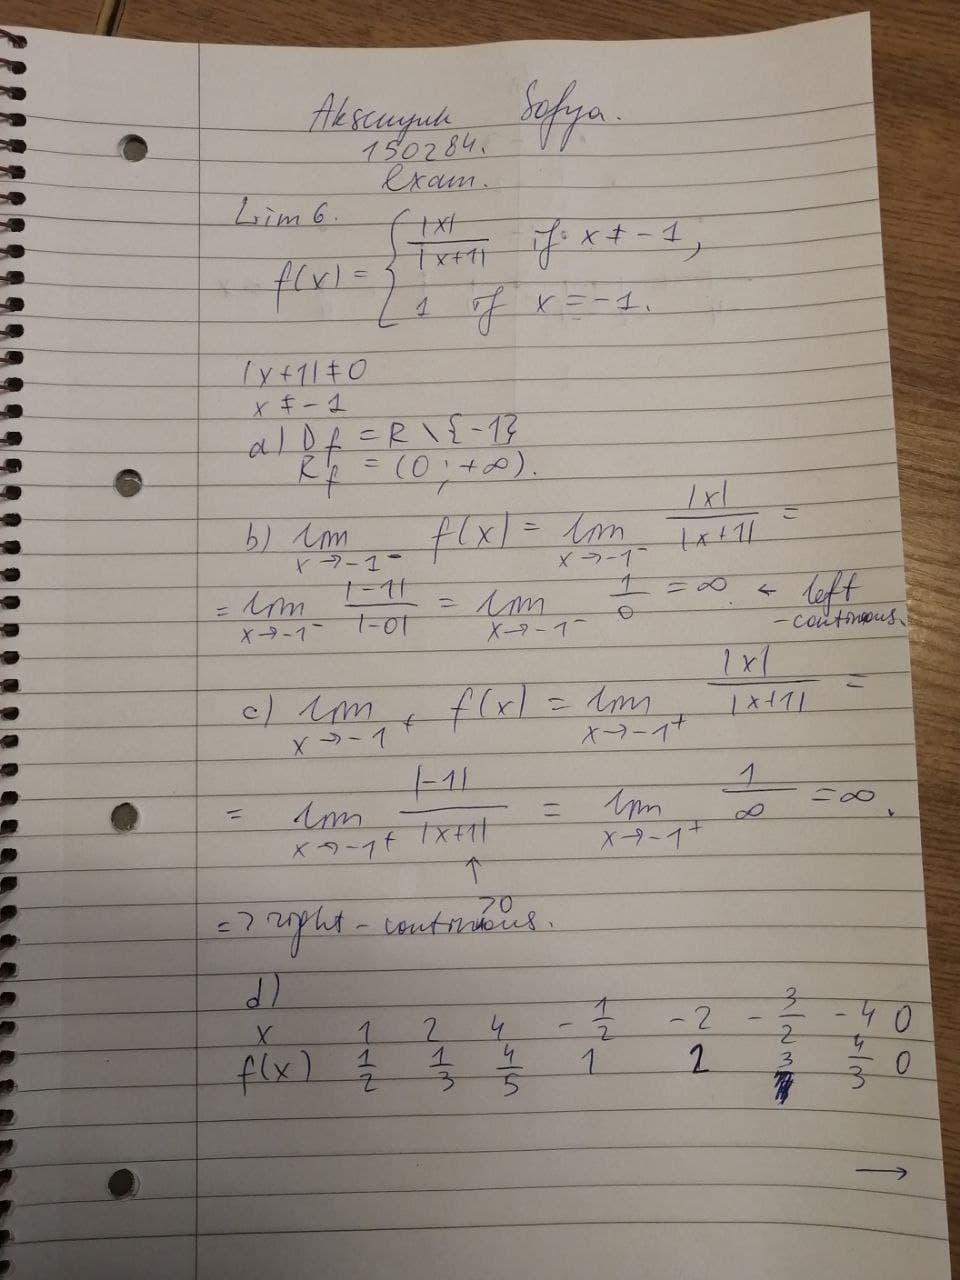 Aksenyuk Sofya.
150284.
Exam.
Lim 6.
f(x) = { |x| / |x+1| if x ≠ -1,
1 if x = -1.
|x+1| ≠ 0
x ≠ -1
a) Df = R \ {-1}
Rf = (0; +∞).
b) lim x→-1⁻ f(x) = lim x→-1⁻ |x| / |x+1| =
= lim x→-1⁻ |-1| / |-0| = lim x→-1⁻ 1/0 = ∞. ← left
-continuous.
c) lim x→-1⁺ f(x) = lim x→-1⁺ |x| / |x+1| =
= lim x→-1⁺ |-1| / |x+1| = lim x→-1⁺ 1/∞ = ∞.
↑
>0
=> right - continuous.
d)
x 1 2 4 -1/2 -2 -3/2 -4 0
f(x) 1/2 1/3 4/5 1 2 3 4/3 0
→